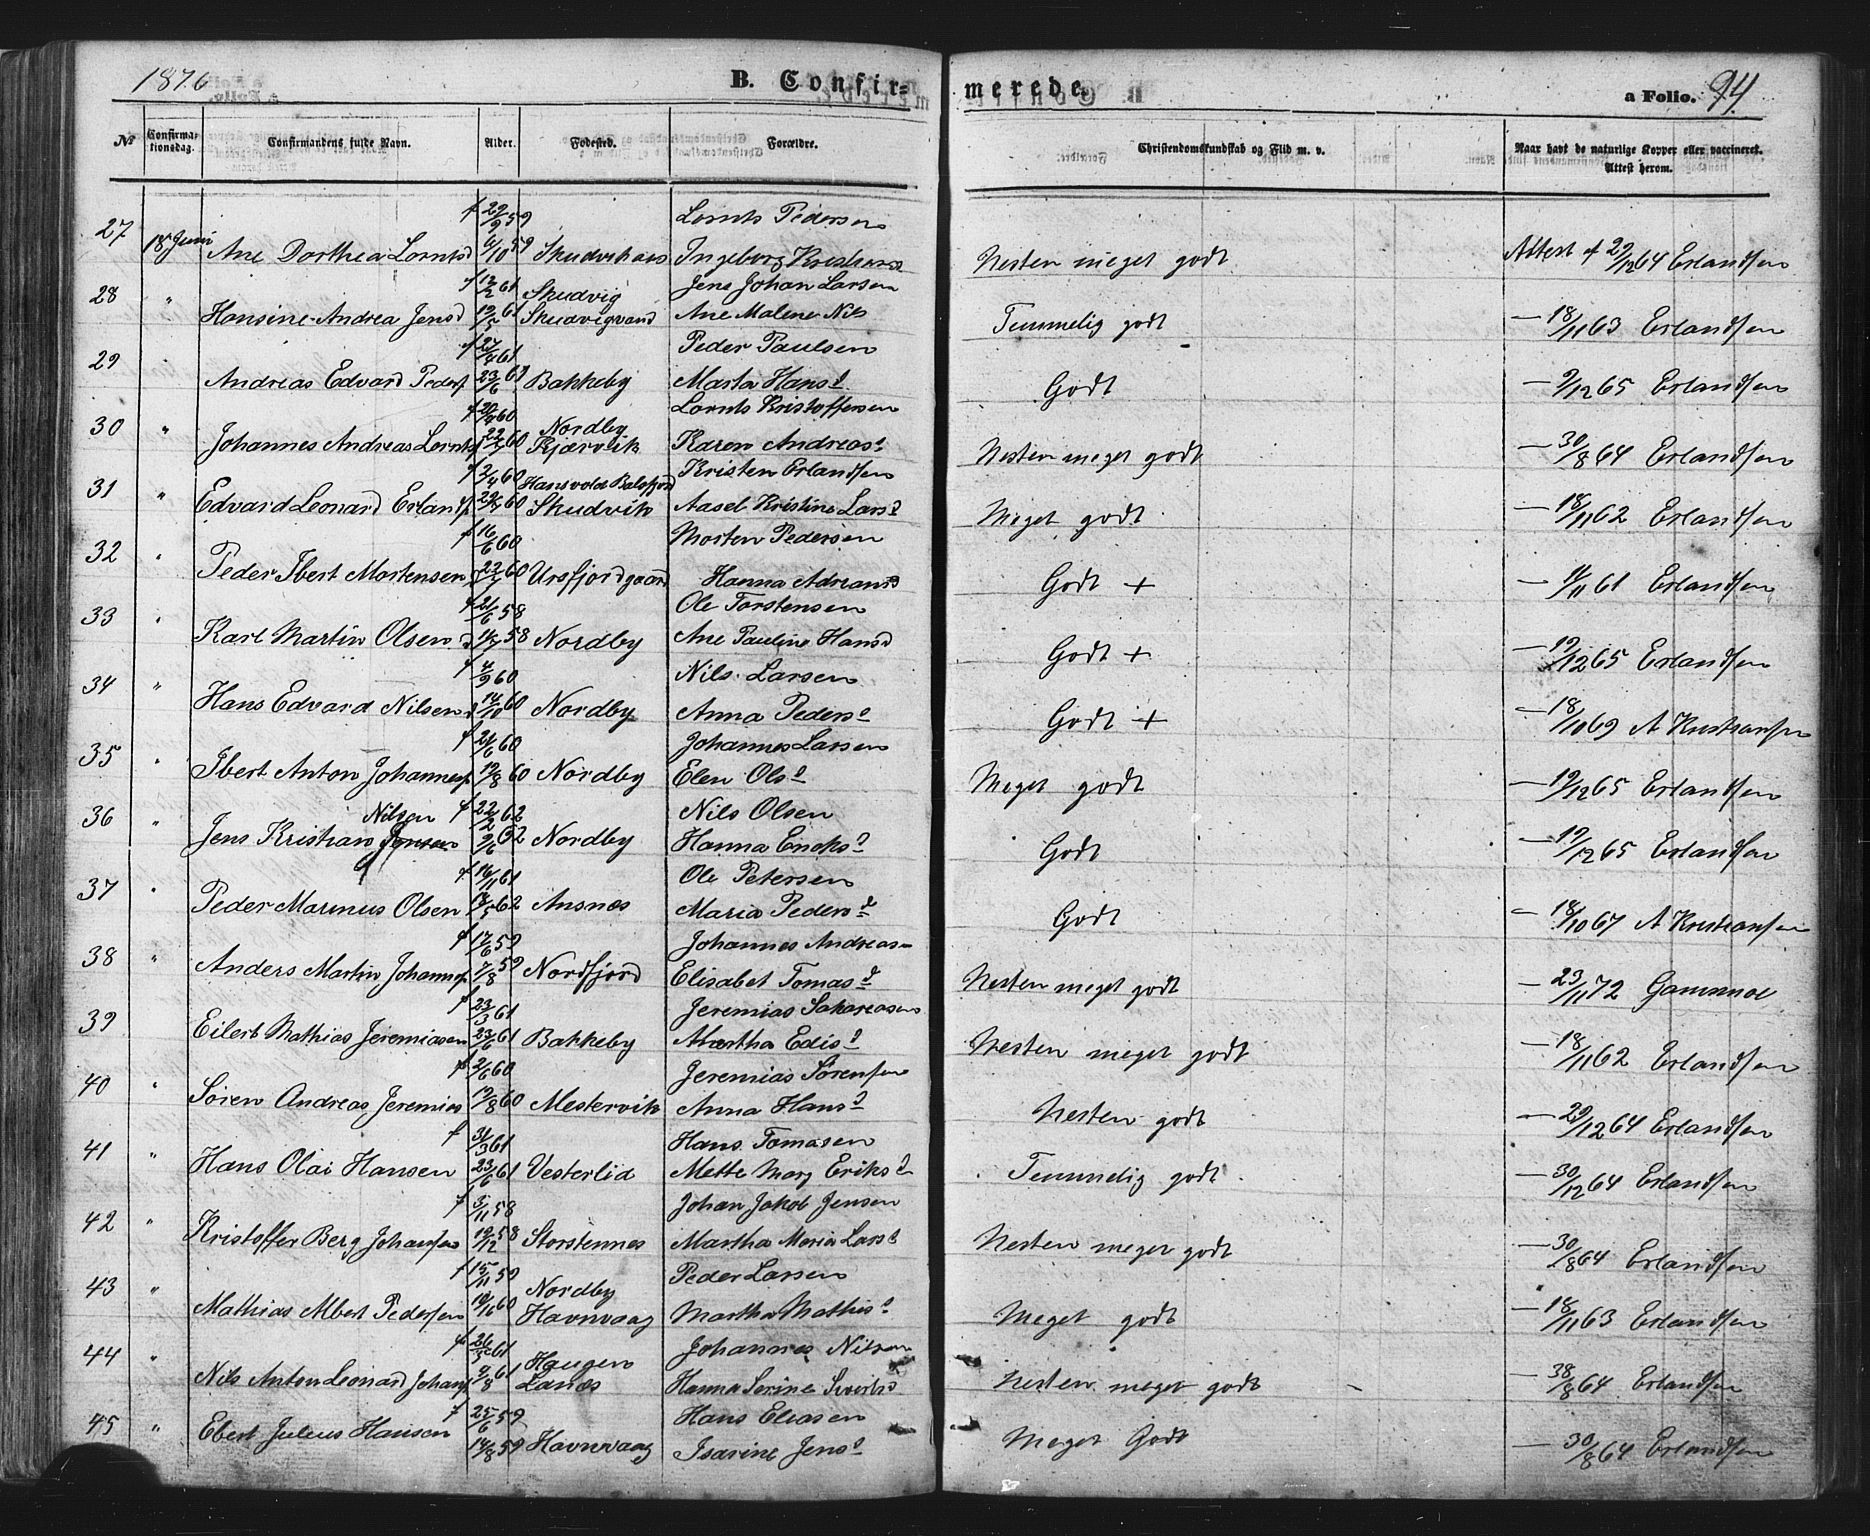 1876 B. Confirmerede. a Folio. 94
No Confirmationsdag. Confirmandens fulde Navn. Alder. Fødested. Forældre. Christendomskundskab og Flid m. v. Naar havt de naturlige Kopper eller vaccineret. Attest herom.
f 29/9 59 Lornts Pedersen
27 18 Juni Ane Dorthea Lorntsd 6/10 59 Skudvikaas Ingeborg Nesten meget godt Attest f 29/12 64 Erlandsen
f 17/2 61 Skudvig Jens Johan Larsen
28 " Hansine Andrea Jensd 19/5 61 Skudvigvand Ane Malene Nils Temmelig godt — 18/11 63 Erlandsen
f 27/4 61 Peder Paulsen
29 Andreas Edvard Peders 23/6 61 Bakkeby Marta Hansd Godt — 9/12 65 Erlandsen
f 20/4 60 Nordby Lornts Kristoffersen
30 " Johannes Andreas Lornts 22/7 60 Kjærvik Karen Andreasd Nesten meget godt — 30/8 64 Erlandsen
f 2/4 60 Hansvold Balsfjord Kristen Erlandsen
31 " Edvard Leonard Erlands 22/7 60 Skudvik Aasel Kristine Larsd Meget godt — 18/11 62 Erlandsen
f 16/6 60 Morten Pedersen
32 " Peder Ibert Mortensen 22/7 60 Ursfjordgaard Hanna Adriansd Godt + — 11/11 61 Erlandsen
f 21/6 58 Ole Torstensen
33 " Karl Martin Olsen 58 Nordby Ane Pauline Hansd Godt + — 19/12 65 Erlandsen
f 4/9 60 Nils Larsen
34 " Hans Edvard Nilsen 14/10 60 Nordby Anna Pedersd Godt + — 18/10 69 A Kristiansen
f 21/6 60 Johannes Larsen
35 " Ibert Anton Johannes 19/8 60 Nordby Elen Olsd Meget godt — 19/12 65 Erlandsen
Nilsen f 22/2 62 Nils Olsen
36 " Jens Kristian Jensen 9/6 62 Nordby Hanna Eriksd Godt — 19/12 65 Erlandsen
f 16/11 61 Ole Petersen
37 " Peder Marinus Olsen 62 Ansnæs Maria Pedersd Godt — 18/10 67 A Kristiansen
f 17/6 59 Johannes Andreas
38 " Anders Martin Johannes 7/8 59 Nordfjord Elisabet Tomasd Nesten meget godt — 23/11 72 Gamnnoe
f 23/3 61 Jeremias Sakareasen
39 " Eilert Mathias Jeremiasen 23/6 61 Bakkeby Martha Edisd Nesten meget godt — 18/11 62 Erlandsen
f 2/6 60 Jeremias Sørensen
40 " Søren Andreas Jeremias 19/8 60 Mestervik Anna Hansd Nesten godt — 29/12 64 Erlandsen
f 31/3 61 Hans Tomasen
41 " Hans Olai Hansen 23/6 61 Vesterlid Mette Marg Eriksd Temmelig godt — 30/12 64 Erlandsen
f 3/11 58 Johan Jakob Jensen
42 " Kristoffer Berg Johansen 19/12 58 Storstennes Martha Maria Larsd Nesten meget godt — 30/8 64 Erlandsen
f 15/11 59 Nordby Peder Larsen
43 " Mathias Albert Pedersen 10/6 60 Havnvaag Martha Mathisd Meget godt — 18/11 63 Erlandsen
f 26/5 61 Haugen Johannes Nilsen
44 " Nils Anton Leonard Johans 9/8 61 Lanæs Hanna Serine Nesten meget godt — 38/8 64 Erlandsen
f 25/6 59 Hans Eliasen
45 " Ebert Julius Hansen 14/8 59 Havnvaag Isarine Jensd Meget Godt — 30/8 64 Erlandsen